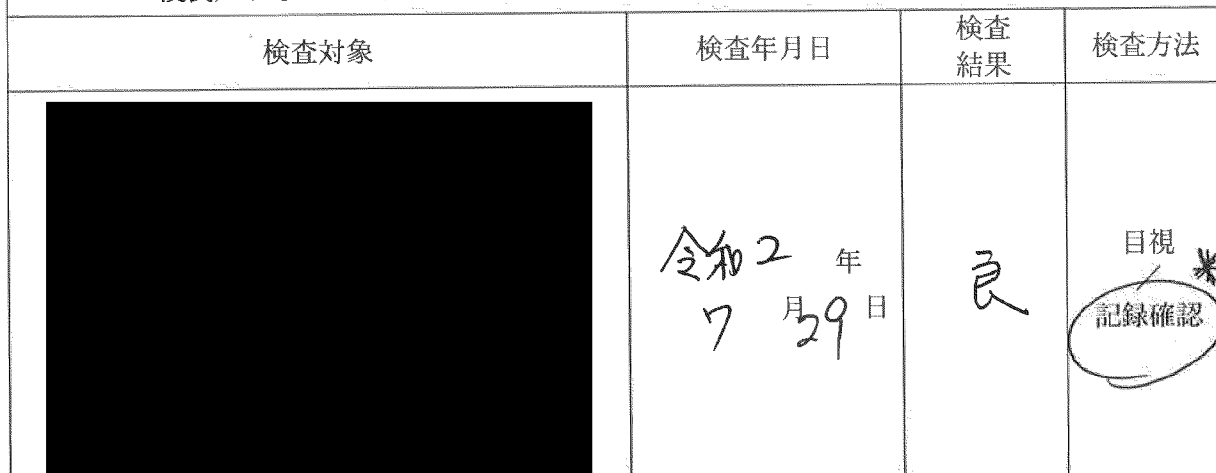 検査対象
検査年月日
検査
結果
検査方法
令和2年
7月29日
良
目視
記録確認
*